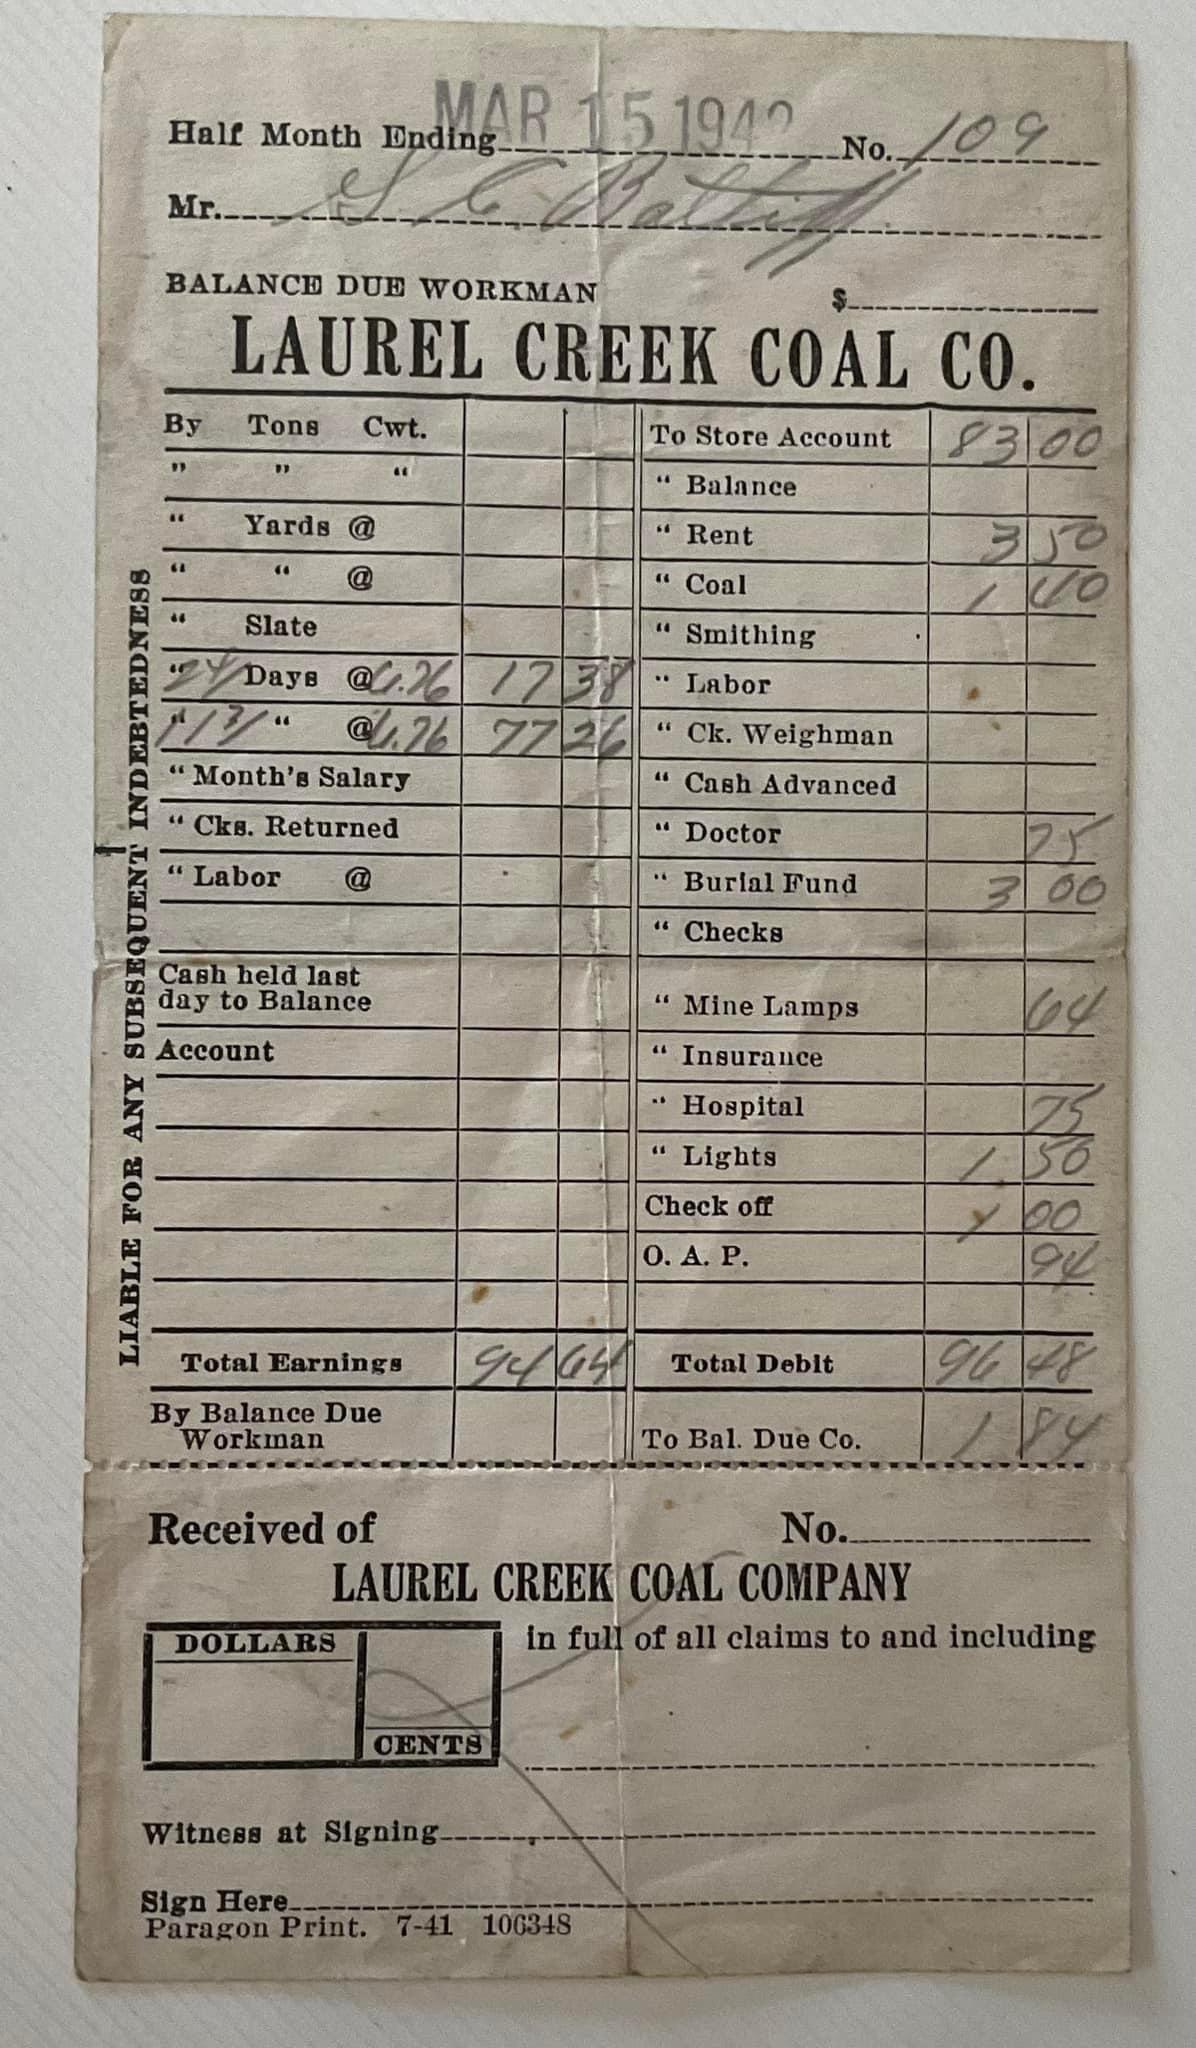 Half Month Ending MAR 15 1942 No. 109
Mr. S C Ratliff
BALANCE DUE WORKMAN $
LAUREL CREEK COAL CO.
LIABLE FOR ANY SUBSEQUENT INDEBTEDNESS
By Tons Cwt.
" " "
" Yards @
" " @
" Slate
" Days @ 6.76 17 38
" " @ 6.76 77 26
" Month's Salary
" Cks. Returned
" Labor @
Cash held last
day to Balance
Account
Total Earnings 94 64
By Balance Due
Workman
To Store Account 83 00
" Balance
" Rent 3 50
" Coal 1 40
" Smithing
" Labor
" Ck. Weighman
" Cash Advanced
" Doctor 75
" Burial Fund 3 00
" Checks
" Mine Lamps 64
" Insurance
" Hospital 75
" Lights 1 50
Check off 1 00
O. A. P. 94
Total Debit 96 48
To Bal. Due Co. 1 84
Received of No.
LAUREL CREEK COAL COMPANY
DOLLARS
CENTS
in full of all claims to and including
Witness at Signing
Sign Here
Paragon Print. 7-41 10634S